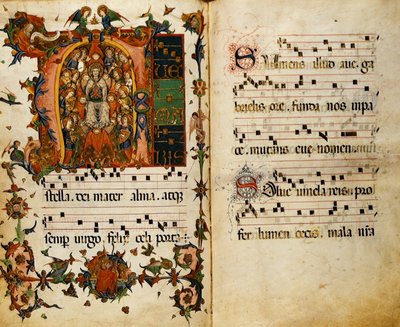 AVE
MA
RIS
stella. dei mater alma. atqz
semp virgo. felix celi porta.
Sumens illud aue. ga
brielis ore. funda nos in pa
ce. mutans eue nomen.
Solue uincla reis. pro
fer lumen cecis. mala nra